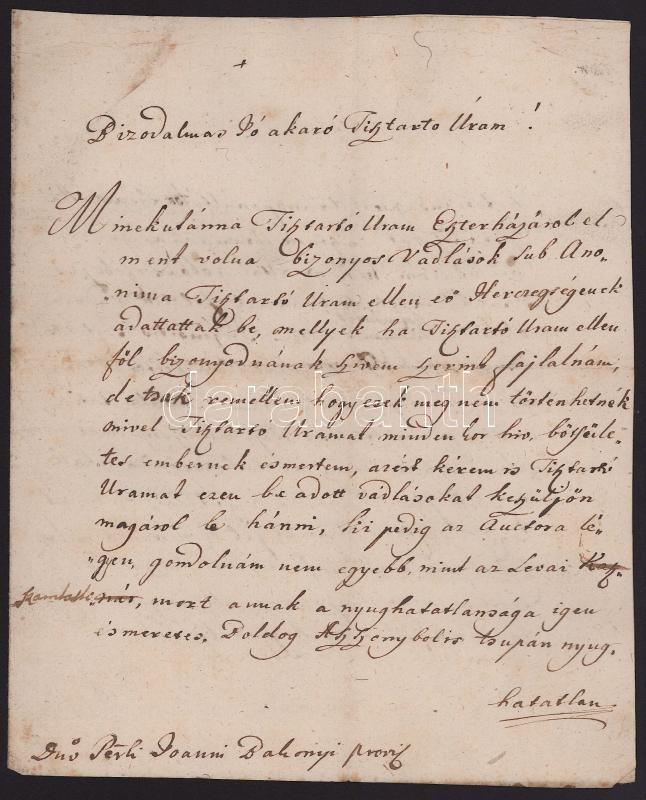 Bizodalmas Jó akaró Tisztarto Uram!
Minekutánna Tisztartó Uram Eszterházárol el
ment volna bizonyos Vadlások sub Ano-
nima Tisztartó Uram ellen eő Herczegségenek
adattattak be, mellyek ha Tisztartó Uram ellen
föl bizonyodnának szivem szerint sajlalnám,
de tsak remellem hogy ezek meg nem törtenhetnék
mivel Tisztartó Uramat mindenkor hiv, bötsüle-
tes embernek ésmertem, azért kérem is Tisztartó
Uramat ezen be adott vádlásokat készüljön
magárol le hánni, ki pedig az Auctora lé-
gyen, gondolnám nem egyebb, mint az Levai
mert annak a nyughatatlansága igen
ésmeretes. Boldog Asszonybolis tsupán nyug-
hatatlan
Dno Perli Joanni Bakonyi provis
darabanth